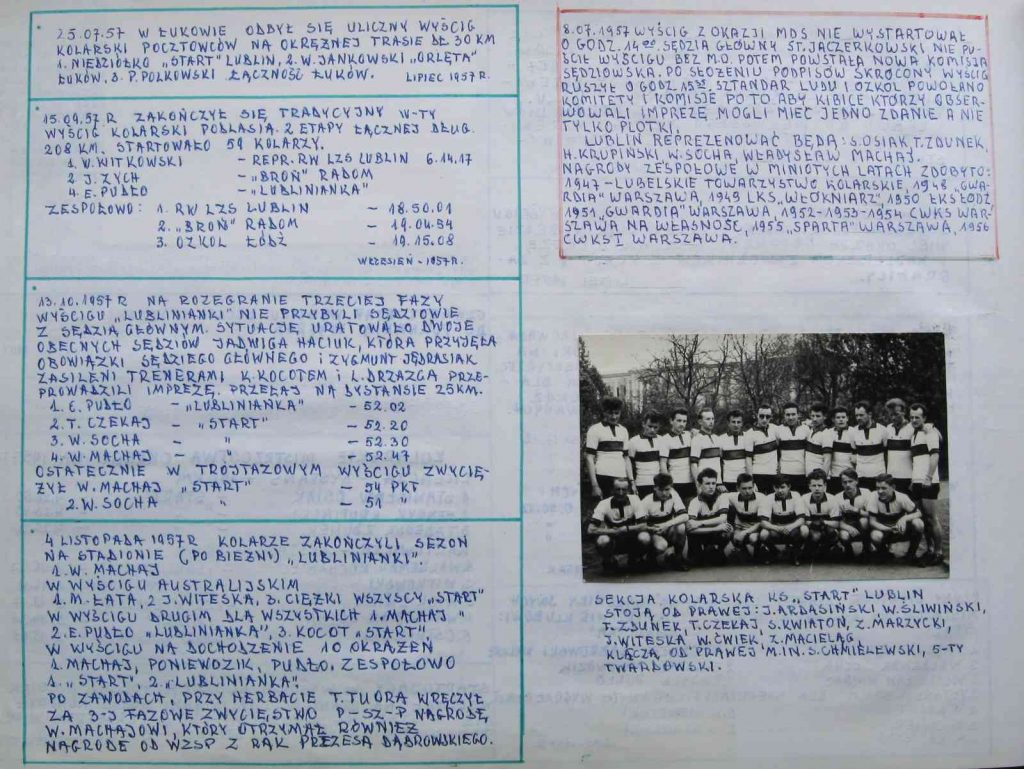 25.07.57 W ŁUKOWIE ODBYŁ SIĘ ULICZNY WYŚCIG
KOLARSKI POCZTOWCÓW NA OKRĘŻNEJ TRASIE DŁ 30 KM
1. NIEDZIÓŁKO "START" LUBLIN, 2. W. JANKOWSKI "ORLĘTA"
ŁUKÓW, 3. P. POLKOWSKI ŁĄCZNOŚĆ ŁUKÓW. LIPIEC 1957 R.
15.09.57 R ZAKOŃCZYŁ SIĘ TRADYCYJNY IV-TY
WYŚCIG KOLARSKI PODLASIA. 2 ETAPY ŁĄCZNEJ DŁUG.
208 KM. STARTOWAŁO 59 KOLARZY.
1. W. WITKOWSKI - REPR. RW LZS LUBLIN 6.14.17
2. J. ZYCH - "BROŃ" RADOM
4. E. PUDŁO - "LUBLINIANKA"
ZESPOŁOWO: 1. RW LZS LUBLIN - 18.50.01
2. "BROŃ" RADOM - 19.04.54
3. OZKOL ŁÓDŹ - 19.15.08
WRZESIEŃ - 1957 R.
13.10.1957 R NA ROZEGRANIE TRZECIEJ FAZY
WYŚCIGU "LUBLINIANKI" NIE PRZYBYLI SĘDZIOWIE
Z SĘDZIĄ GŁÓWNYM. SYTUACJĘ URATOWAŁO DWOJE
OBECNYCH SĘDZIÓW JADWIGA HACIUK, KTÓRA PRZYJĘŁA
OBOWIĄZKI SĘDZIEGO GŁÓWNEGO I ZYGMUNT JĘDRASIAK
ZASILENI TRENERAMI K. KOCOTEM I L. DRZAZGĄ PRZE-
PROWADZILI IMPREZĘ. PRZEŁAJ NA DYSTANSIE 25 KM.
1. E. PUDŁO - "LUBLINIANKA" - 52.02
2. T. CZEKAJ - "START" - 52.20
3. W. SOCHA - " - 52.30
4. W. MACHAJ - " - 52.47
OSTATECZNIE W TRÓJFAZOWYM WYŚCIGU ZWYCIĘ-
ŻYŁ W. MACHAJ "START" - 54 PKT
2. W. SOCHA " - 51 "
4 LISTOPADA 1957 R KOLARZE ZAKOŃCZYLI SEZON
NA STADIONIE (PO BIEŻNI) "LUBLINIANKI"
1. W. MACHAJ
W WYŚCIGU AUSTRALIJSKIM
1. M. ŁATA, 2 J. WITESKA, 3. CIĘŻKI WSZYSCY "START"
W WYŚCIGU DRUGIM DLA WSZYSTKICH 1. MACHAJ "
2. E. PUDŁO "LUBLINIANKA", 3. KOCOT "START",
W WYŚCIGU NA DOCHODZENIE 10 OKRĄŻEŃ
1. MACHAJ, PONIEWOZIK, PUDŁO. ZESPOŁOWO
1. "START", 2. "LUBLINIANKA".
PO ZAWODACH, PRZY HERBACIE T. TUORA WRĘCZYŁ
ZA 3-J FAZOWE ZWYCIĘSTWO P-SZ-P NAGRODĘ
W. MACHAJOWI, KTÓRY OTRZYMAŁ RÓWNIEŻ
NAGRODĘ OD WZSP Z RĄK PREZESA DĄBROWSKIEGO.
8.07.1957 WYŚCIG Z OKAZJI MDS NIE WYSTARTOWAŁ
O GODZ. 14⁰⁰. SĘDZIA GŁÓWNY ST. JACZERKOWSKI NIE PU-
ŚCIŁ WYŚCIGU BEZ M.O. POTEM POWSTAŁA NOWA KOMISJA
SĘDZIOWSKA. PO ZŁOŻENIU PODPISÓW SKRÓCONY WYŚCIG
RUSZYŁ O GODZ 15³⁵. SZTANDAR LUDU I OZKOL POWOŁANO
KOMITETY I KOMISJE PO TO ABY KIBICE KTÓRZY OBSER-
WOWALI IMPREZĘ MOGLI MIEĆ JEDNO ZDANIE A NIE
TYLKO PLOTKI.
LUBLIN REPREZENOWAĆ BĘDĄ: S. OSIAK, T. ZDUNEK,
H. KRUPIŃSKI W. SOCHA, WŁADYSŁAW MACHAJ.
NAGRODY ZESPOŁOWE W MINIOTYCH LATACH ZDOBYTO:
1947 - LUBELSKIE TOWARZYSTWO KOLARSKIE, 1948 "GWA-
RDIA" WARSZAWA, 1949 LKS "WŁÓKNIARZ" 1950 ŁKS ŁÓDŹ
1951 "GWARDIA" WARSZAWA, 1952-1953-1954 CWKS WAR-
SZAWA NA WŁASNOŚĆ, 1955 "SPARTA" WARSZAWA, 1956
CWKS I WARSZAWA.
SEKCJA KOLARSKA KS. "START" LUBLIN
STOJĄ OD PRAWEJ: J. ARDASIŃSKI, W. ŚLIWIŃSKI,
T. ZDUNEK, T. CZEKAJ, S. KWIATOŃ, Z. MARZYCKI,
J. WITESKA, W. ĆWIEK, Z. MACIELĄG
KLĘCZĄ OD PRAWEJ M.IN. S. CHMIELEWSKI, 5-TY
TWARDOWSKI.